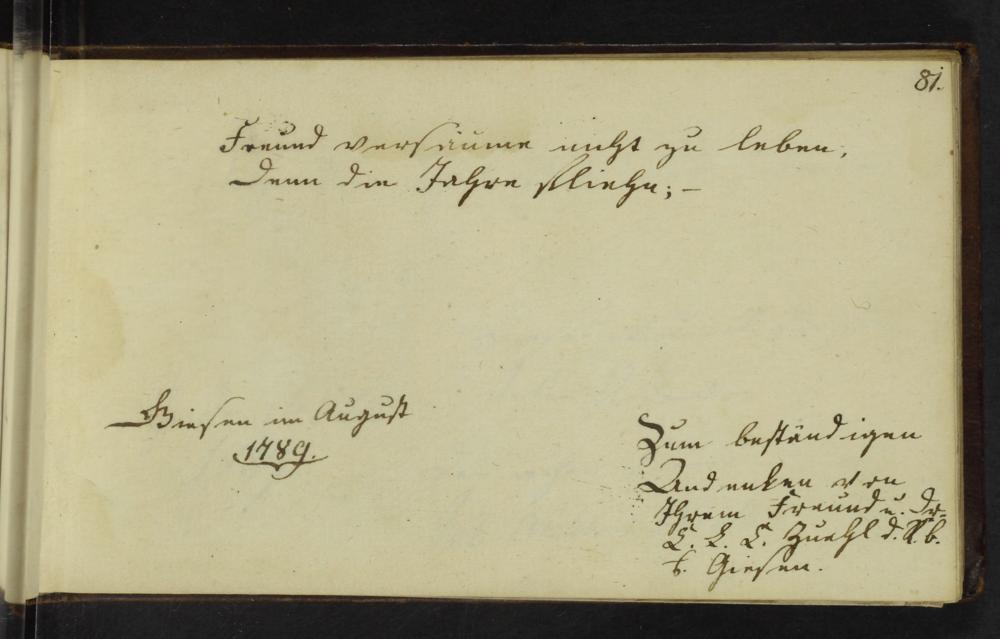 81.
Freund versäume nicht zu leben,
Denn die Jahre fliehn; –
Giesen im August
1789.
Zum beständigen
Andenken von
Ihrem Freund u. Dr
L. L. C. Zuehl d. R. b.
Giesen.